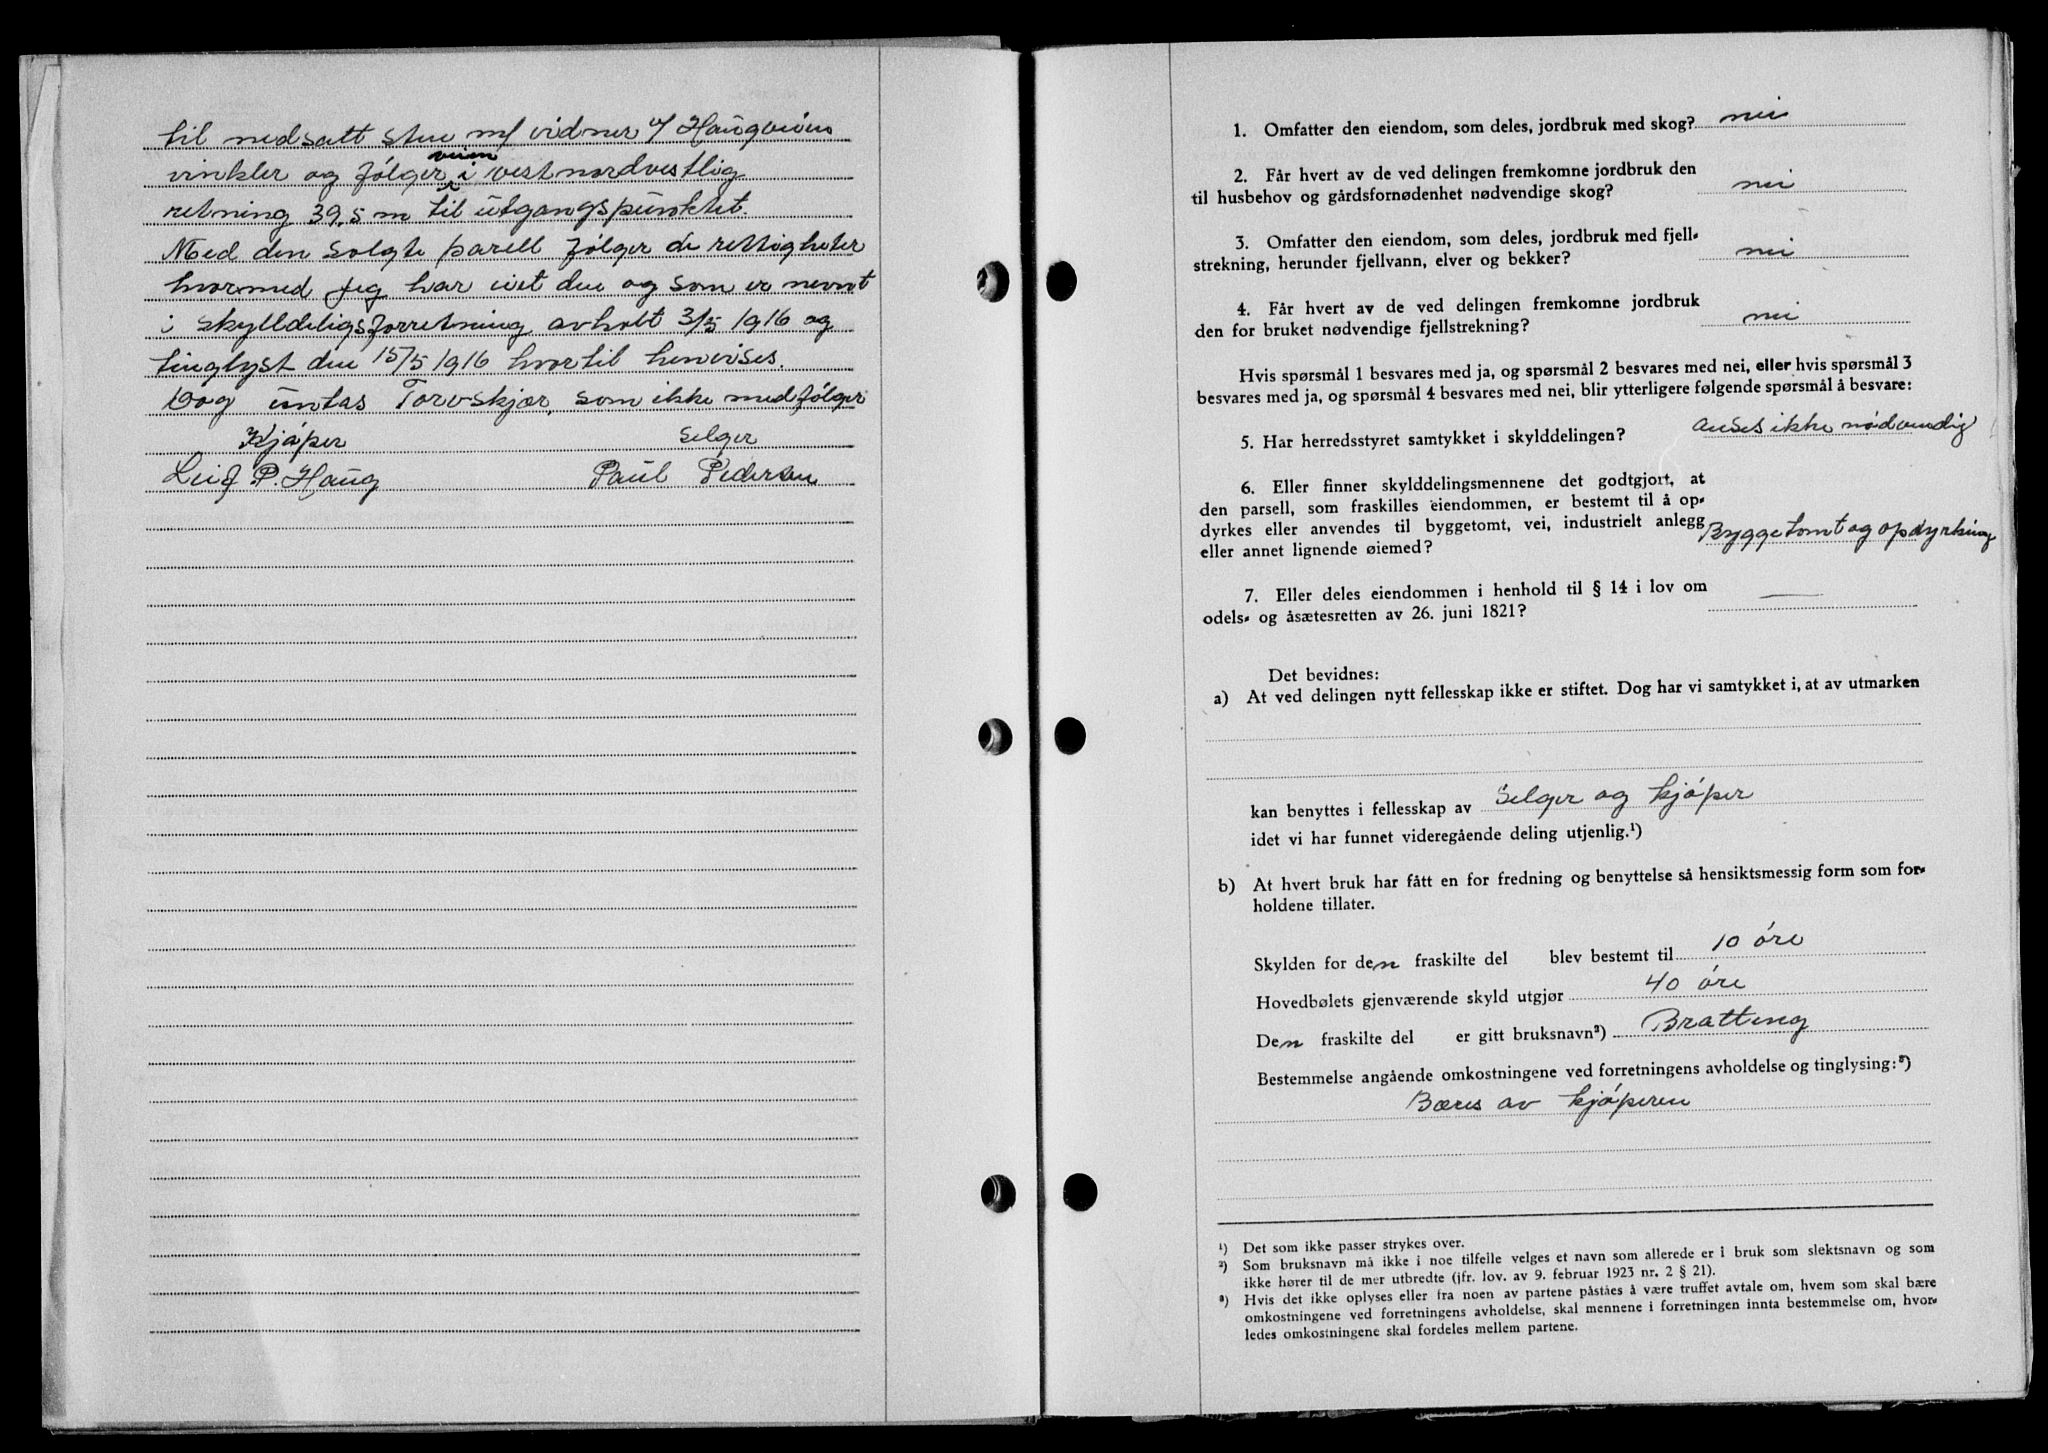 til nedsatt sten m/ vidner v/ Haugveien
vinkler og følger veien i vestnordvestlig
retning 39,5 m til utgangspunktet.
Med den solgte parell følger de rettigheter
hvormed jeg har eiet den og som er nevnt
i skylddeligsforretning avholt 3/5 1916 og
tinglyst den 15/5 1916 hvortil henvises.
Dog untas Torvskjær, som ikke medfølger
Kjøper Selger
Leif P. Haug Paul Pedersen
1. Omfatter den eiendom, som deles, jordbruk med skog? nei
2. Får hvert av de ved delingen fremkomne jordbruk den
til husbehov og gårdsfornødenhet nødvendige skog? nei
3. Omfatter den eiendom, som deles, jordbruk med fjell-
strekning, herunder fjellvann, elver og bekker? nei
4. Får hvert av de ved delingen fremkomne jordbruk
den for bruket nødvendige fjellstrekning? nei
Hvis spørsmål 1 besvares med ja, og spørsmål 2 besvares med nei, eller hvis spørsmål 3
besvares med ja, og spørsmål 4 besvares med nei, blir ytterligere følgende spørsmål å besvare:
5. Har herredsstyret samtykket i skylddelingen? Anses ikke nødvendig
6. Eller finner skylddelingsmennene det godtgjort, at
den parsell, som fraskilles eiendommen, er bestemt til å op-
dyrkes eller anvendes til byggetomt, vei, industrielt anlegg
eller annet lignende øiemed? Byggetomt og opdyrking
7. Eller deles eiendommen i henhold til § 14 i lov om
odels- og åsætesretten av 26. juni 1821? —
Det bevidnes:
a) At ved delingen nytt fellesskap ikke er stiftet. Dog har vi samtykket i, at av utmarken
kan benyttes i fellesskap av Selger og kjøper
idet vi har funnet videregående deling utjenlig.¹)
b) At hvert bruk har fått en for fredning og benyttelse så hensiktsmessig form som for-
holdene tillater.
Skylden for den fraskilte del blev bestemt til 10 øre
Hovedbølets gjenværende skyld utgjør 40 øre
Den fraskilte del er gitt bruksnavn²) Bratteng
Bestemmelse angående omkostningene ved forretningens avholdelse og tinglysing:³)
Bæres av kjøperen
¹) Det som ikke passer strykes over.
²) Som bruksnavn må ikke i noe tilfelle velges et navn som allerede er i bruk som slektsnavn og som
ikke hører til de mer utbredte (jfr. lov. av 9. februar 1923 nr. 2 § 21).
³) Hvis det ikke oplyses eller fra noen av partene påståes å være truffet avtale om, hvem som skal bære
omkostningene ved forretningens avholdelse, skal mennene i forretningen innta bestemmelse om, hvor-
ledes omkostningene skal fordeles mellem partene.